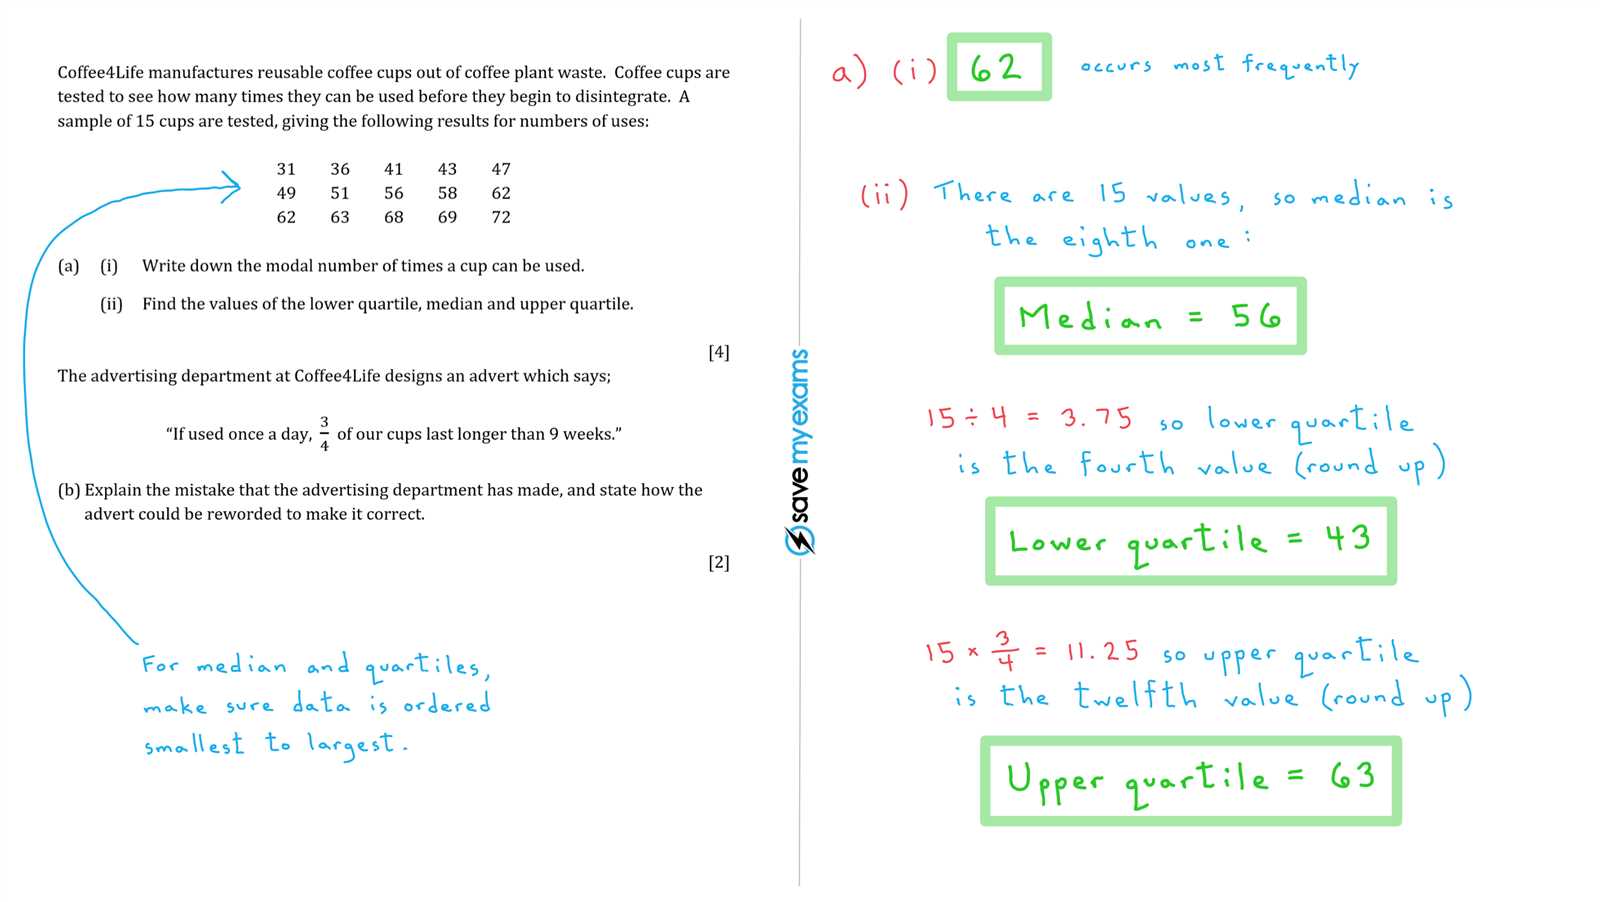 Coffee4Life manufactures reusable coffee cups out of coffee plant waste. Coffee cups are
tested to see how many times they can be used before they begin to disintegrate. A
sample of 15 cups are tested, giving the following results for numbers of uses:
31 36 41 43 47
49 51 56 58 62
62 63 68 69 72
(a) (i) Write down the modal number of times a cup can be used.
(ii) Find the values of the lower quartile, median and upper quartile.
[4]
The advertising department at Coffee4Life designs an advert which says;
“If used once a day, 3/4 of our cups last longer than 9 weeks.”
(b) Explain the mistake that the advertising department has made, and state how the
advert could be reworded to make it correct.
[2]
For median and quartiles,
make sure data is ordered
smallest to largest.
savemyexams
a) (i) 62 occurs most frequently
(ii) There are 15 values, so median is
the eighth one:
Median = 56
15 ÷ 4 = 3.75 so lower quartile
is the fourth value (round up)
Lower quartile = 43
15 × 3/4 = 11.25 so upper quartile
is the twelfth value (round up)
Upper quartile = 63